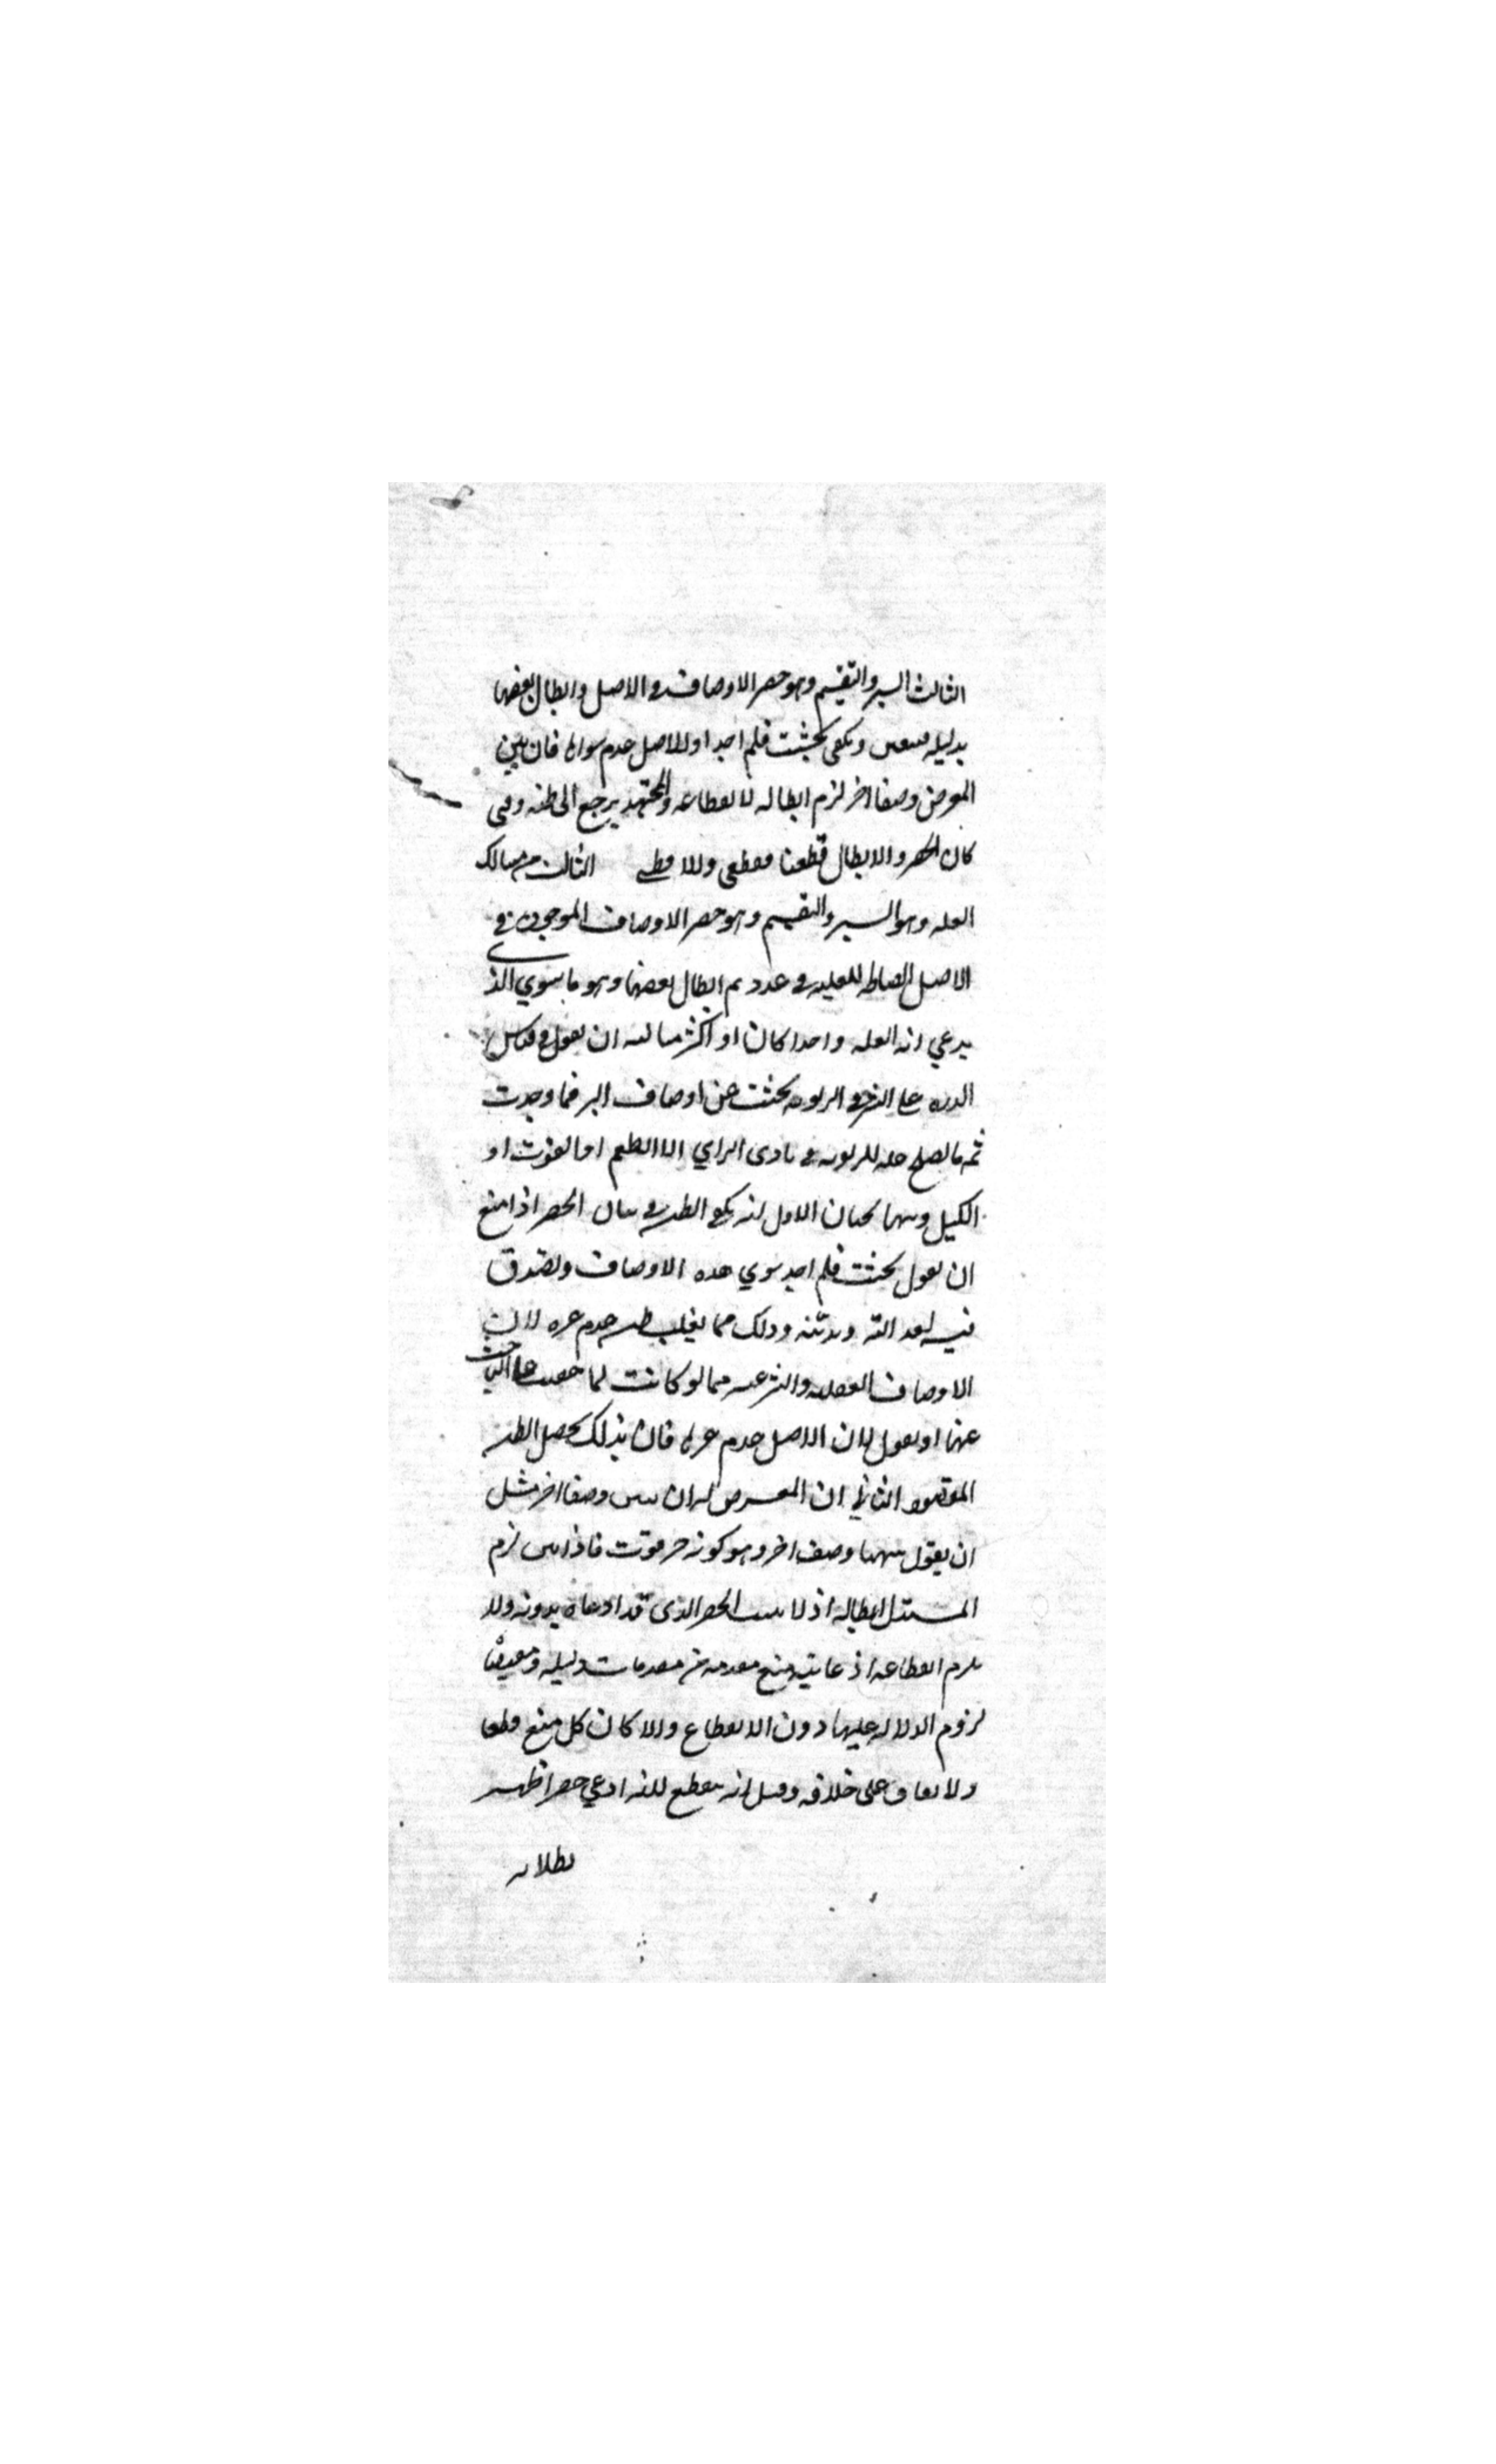 الثالث السبر والتقسيم وهو حصر الاوصاف في الاصل وابطال بعضها
بدليله فيتعين ويكفي بحثت فلم اجد او الاصل عدم سواها فان بين
المعترض وصفا اخر لزم ابطاله لا انقطاعه والمجتهد يرجع الى ظنه ومتى
كان الحصر والابطال قطعيا فقطعي والا فظني الثالث من مسالك
العله وهو السبر والتقسيم وهو حصر الاوصاف الموجودة في
الاصل الصالحة للعلية في عدد ثم ابطال بعضها وهو ما سوي الذي
يدعي انه العله واحدا كان او اكثر مثاله ان يقول في قياس
الذره على البر في الربوية بحثت عن اوصاف البر فما وجدت
ثمه ما يصلح عله للربوية في بادى الراي الا الطعم او القوت او
الكيل وهنا بحثان الاول انه يكفي الظن في بيان الحصر اذا منع
ان يقول بحثت فلم اجد سوي هذه الاوصاف ويصدق
فيه لعدالته وتدينه وذلك مما يغلب ظن عدم غيره لان
الاوصاف العقليه والشرعيه مما لو كانت لما خفيت على الباحث
عنها او يقول لان الاصل عدم غيرها فان بذلك يحصل الظن
المقصود الثاني ان المعترض له ان يبين وصفا اخر مثل
ان يقول ههنا وصف اخر وهو كونه خير قوت فاذا بين لزم
المستدل ابطاله اذ لا يثبت الحصر الذى قد ادعاه بدونه ولا
يلزم انقطاعه اذ غايته منع مقدمه من مقدمات دليله ومقتضاه
لزوم الدلاله عليها دون الانقطاع والا كان كل منع قطعا
والاتفاق على خلافه وقيل انه ينقطع لانه ادعي حصرا ظهر
بطلانه